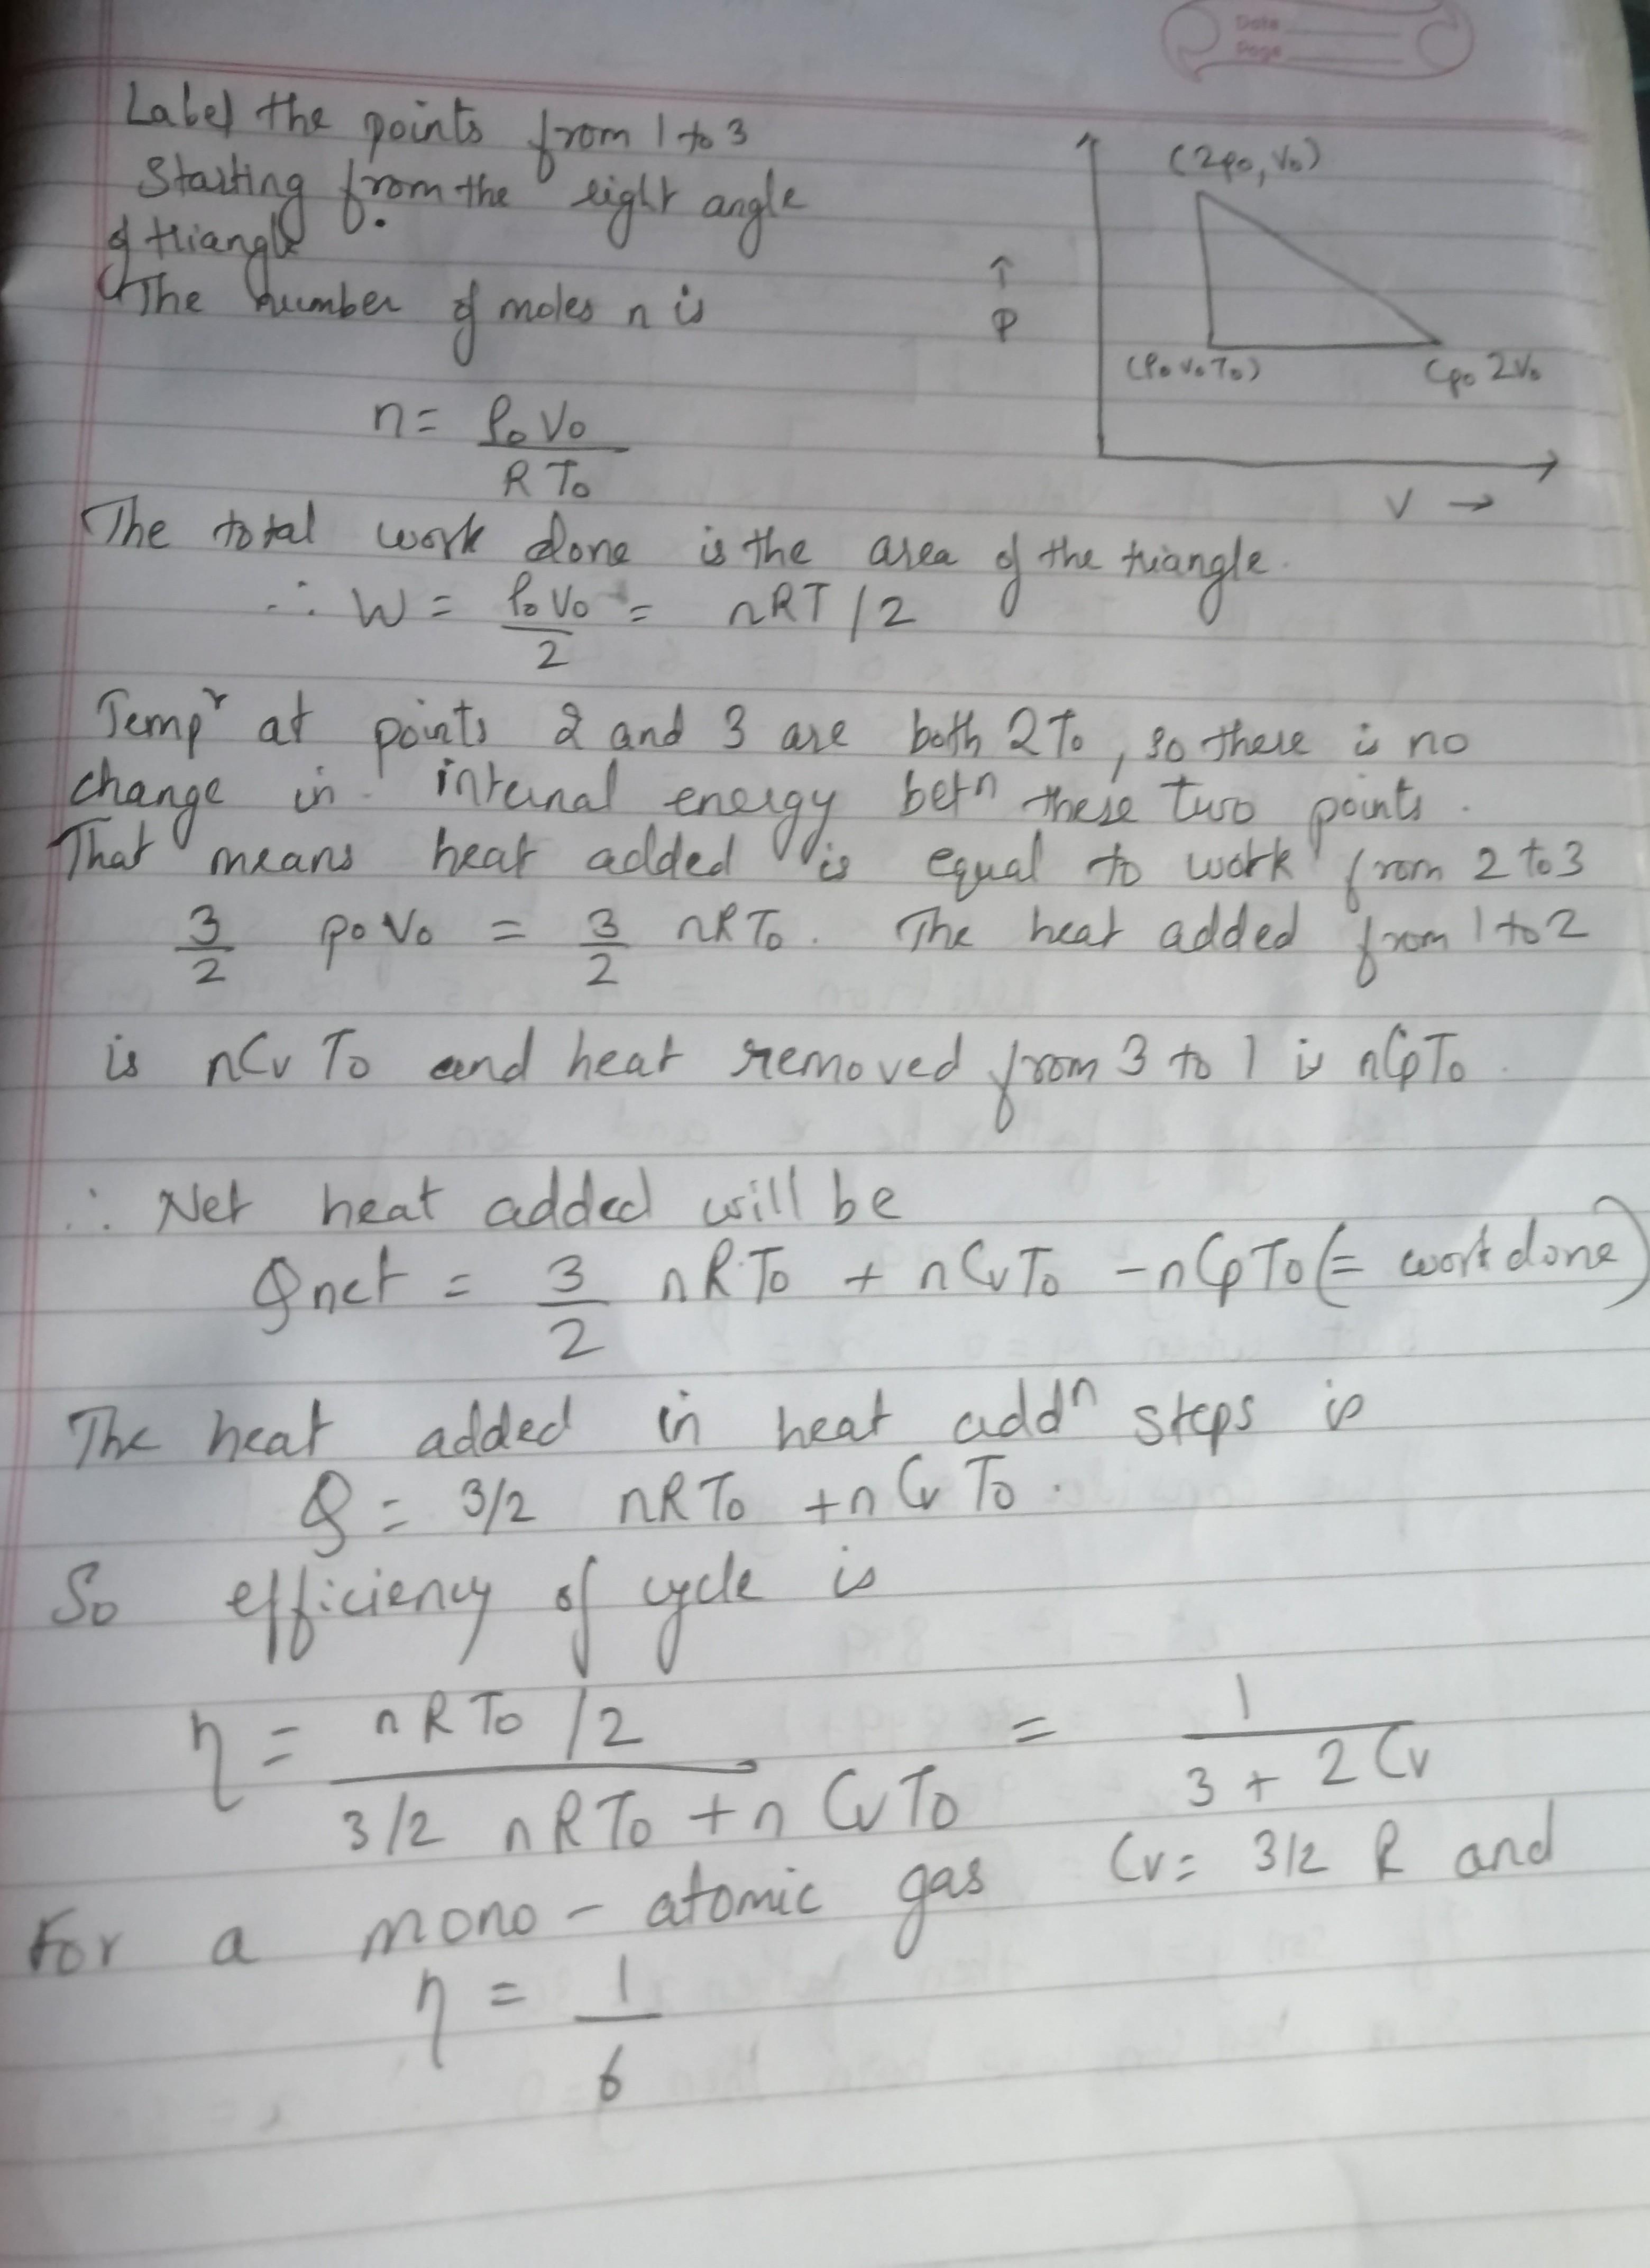 Date
Page
Label the points from 1 to 3
Starting from the right angle
of triangle
The number of moles n is
n = P₀V₀ / RT₀
(2p₀, V₀)
↑
P
(P₀ V₀ T₀)
(p₀ 2V₀
V →
The total work done is the area of the triangle.
∴ W = P₀V₀ / 2 = nRT/2
Tempʳ at points 2 and 3 are both 2T₀, so there is no
change in internal energy betⁿ these two points.
That means heat added is equal to work from 2 to 3
3/2 p₀V₀ = 3/2 nRT₀. The heat added from 1 to 2
is nCv T₀ and heat removed from 3 to 1 is nCpT₀.
∴ Net heat added will be
Qnet = 3/2 nRT₀ + nCvT₀ - nCpT₀ (= work done)
The heat added in heat addⁿ steps is
Q = 3/2 nRT₀ + nCv T₀.
So efficiency of cycle is
η = nRT₀/2 / 3/2 nRT₀ + n CvT₀ = 1 / 3 + 2Cv
For a mono - atomic gas Cv = 3/2 R and
η = 1 / 6